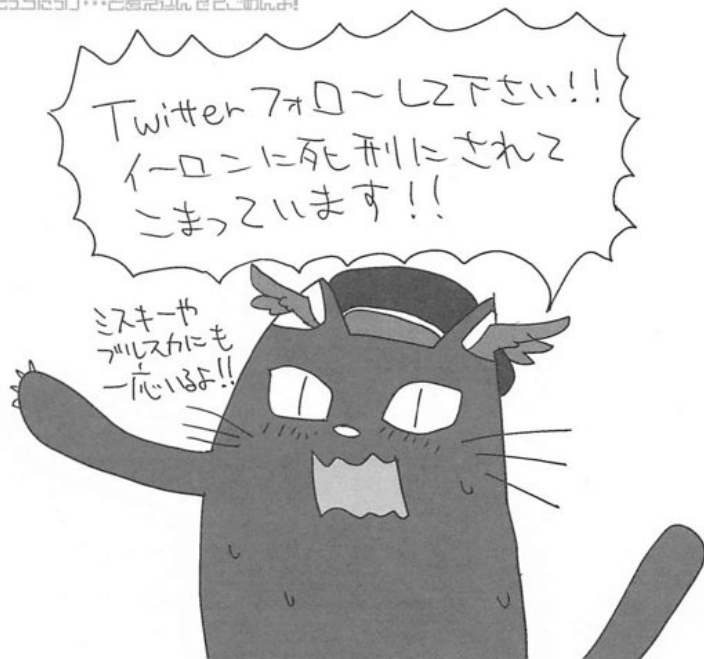 Twitterフォローして下さい!!
イーロンに死刑にされて
こまっています!!
ミスキーや
ブルスカにも
一応いるよ!!